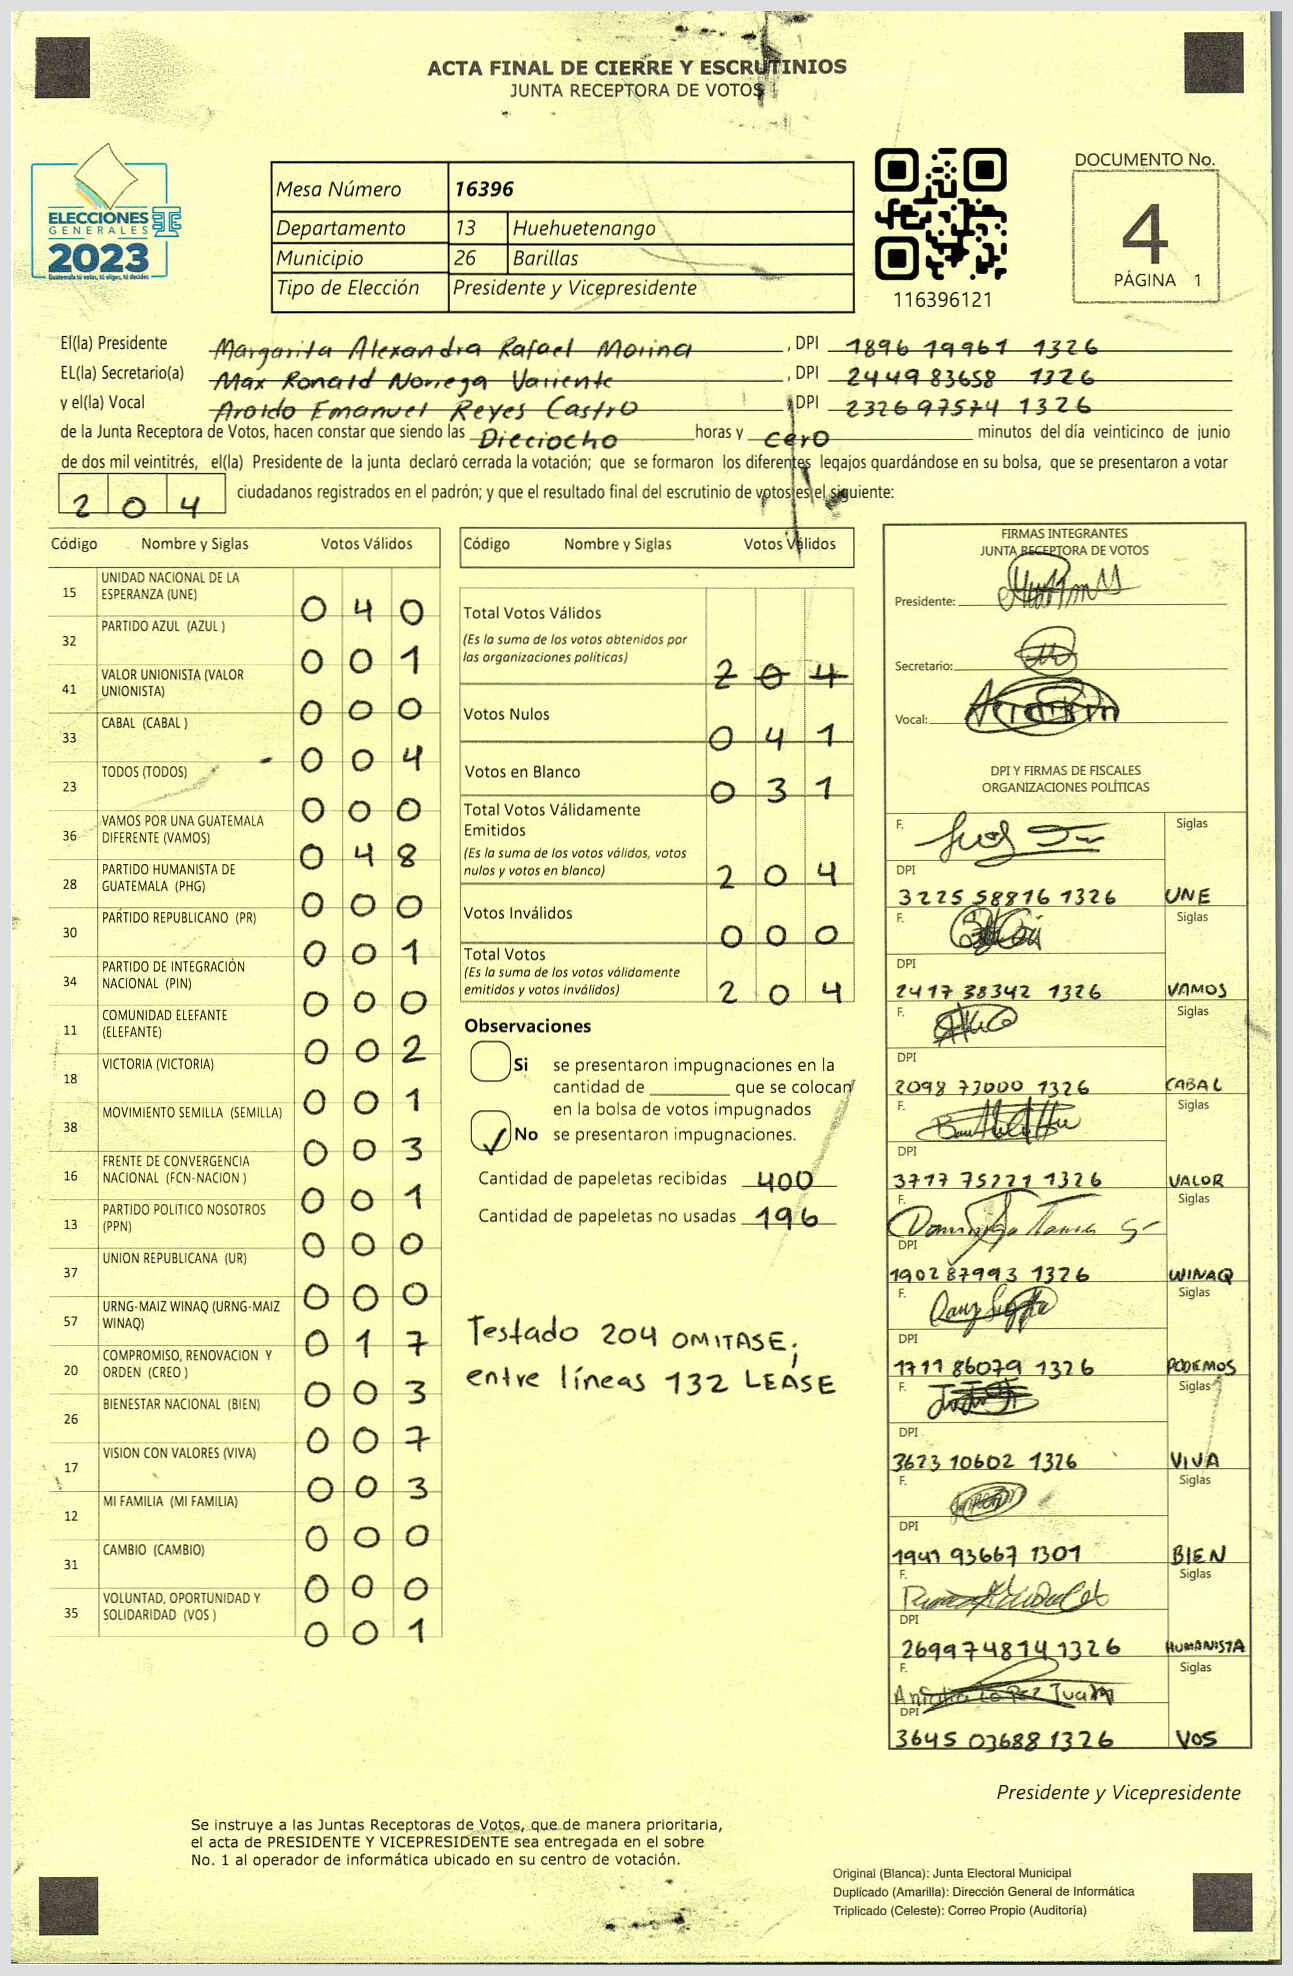 ACTA FINAL DE CIERRE Y ESCRUTINIOS
JUNTA RECEPTORA DE VOTOS
ELECCIONES
GENERALES
2023
Guatemala tú votas, tú eliges, tú decides
Mesa Número 16396
Departamento 13 Huehuetenango
Municipio 26 Barillas
Tipo de Elección Presidente y Vicepresidente
116396121
DOCUMENTO No.
4
PÁGINA 1
El(la) Presidente Margarita Alexandra Rafael Molina, DPI 1896 19961 1326
EL(la) Secretario(a) Max Ronald Noriega Valiente, DPI 2449 83658 1326
y el(la) Vocal Aroldo Emanuel Reyes Castro, DPI 2326 97574 1326
de la Junta Receptora de Votos, hacen constar que siendo las Dieciocho horas y cero minutos del día veinticinco de junio
de dos mil veintitrés, el(la) Presidente de la junta declaró cerrada la votación; que se formaron los diferentes legajos guardándose en su bolsa, que se presentaron a votar
204 ciudadanos registrados en el padrón; y que el resultado final del escrutinio de votos es el siguiente:
Código Nombre y Siglas Votos Válidos
15 UNIDAD NACIONAL DE LA ESPERANZA (UNE) 040
32 PARTIDO AZUL (AZUL ) 001
41 VALOR UNIONISTA (VALOR UNIONISTA) 000
33 CABAL (CABAL ) 004
23 TODOS (TODOS) 000
36 VAMOS POR UNA GUATEMALA DIFERENTE (VAMOS) 048
28 PARTIDO HUMANISTA DE GUATEMALA (PHG) 000
30 PARTIDO REPUBLICANO (PR) 001
34 PARTIDO DE INTEGRACIÓN NACIONAL (PIN) 000
11 COMUNIDAD ELEFANTE (ELEFANTE) 002
18 VICTORIA (VICTORIA) 001
38 MOVIMIENTO SEMILLA (SEMILLA) 003
16 FRENTE DE CONVERGENCIA NACIONAL (FCN-NACION ) 001
13 PARTIDO POLITICO NOSOTROS (PPN) 000
37 UNION REPUBLICANA (UR) 000
57 URNG-MAIZ WINAQ (URNG-MAIZ WINAQ) 017
20 COMPROMISO, RENOVACION Y ORDEN (CREO ) 003
26 BIENESTAR NACIONAL (BIEN) 007
17 VISION CON VALORES (VIVA) 003
12 MI FAMILIA (MI FAMILIA) 000
31 CAMBIO (CAMBIO) 000
35 VOLUNTAD, OPORTUNIDAD Y SOLIDARIDAD (VOS ) 001
Código Nombre y Siglas Votos Válidos
Total Votos Válidos
(Es la suma de los votos obtenidos por
las organizaciones políticas) 204
Votos Nulos 041
Votos en Blanco 031
Total Votos Válidamente
Emitidos
(Es la suma de los votos válidos, votos
nulos y votos en blanco) 204
Votos Inválidos 000
Total Votos
(Es la suma de los votos válidamente
emitidos y votos inválidos) 204
Observaciones
Si se presentaron impugnaciones en la
cantidad de que se colocan
en la bolsa de votos impugnados
No se presentaron impugnaciones.
Cantidad de papeletas recibidas 400
Cantidad de papeletas no usadas 196
Testado 204 OMITASE;
entre líneas 132 LEASE
FIRMAS INTEGRANTES
JUNTA RECEPTORA DE VOTOS
Presidente:
Secretario:
Vocal:
DPI Y FIRMAS DE FISCALES
ORGANIZACIONES POLÍTICAS
F. Siglas
DPI
3225 58816 1326 UNE
F. Siglas
DPI
2417 38342 1326 VAMOS
F. Siglas
DPI
2098 73000 1326 CABAL
F. Siglas
DPI
3717 75221 1326 VALOR
F. Siglas
DPI
1902 87993 1326 WINAQ
F. Siglas
DPI
1711 86079 1326 PODEMOS
F. Siglas
DPI
3623 10602 1326 VIVA
F. Siglas
DPI
1941 93667 1301 BIEN
F. Siglas
DPI
2699 74814 1326 HUMANISTA
F. Siglas
DPI
3645 03688 1326 VOS
Presidente y Vicepresidente
Se instruye a las Juntas Receptoras de Votos, que de manera prioritaria,
el acta de PRESIDENTE Y VICEPRESIDENTE sea entregada en el sobre
No. 1 al operador de informática ubicado en su centro de votación.
Original (Blanca): Junta Electoral Municipal
Duplicado (Amarilla): Dirección General de Informática
Triplicado (Celeste): Correo Propio (Auditoría)